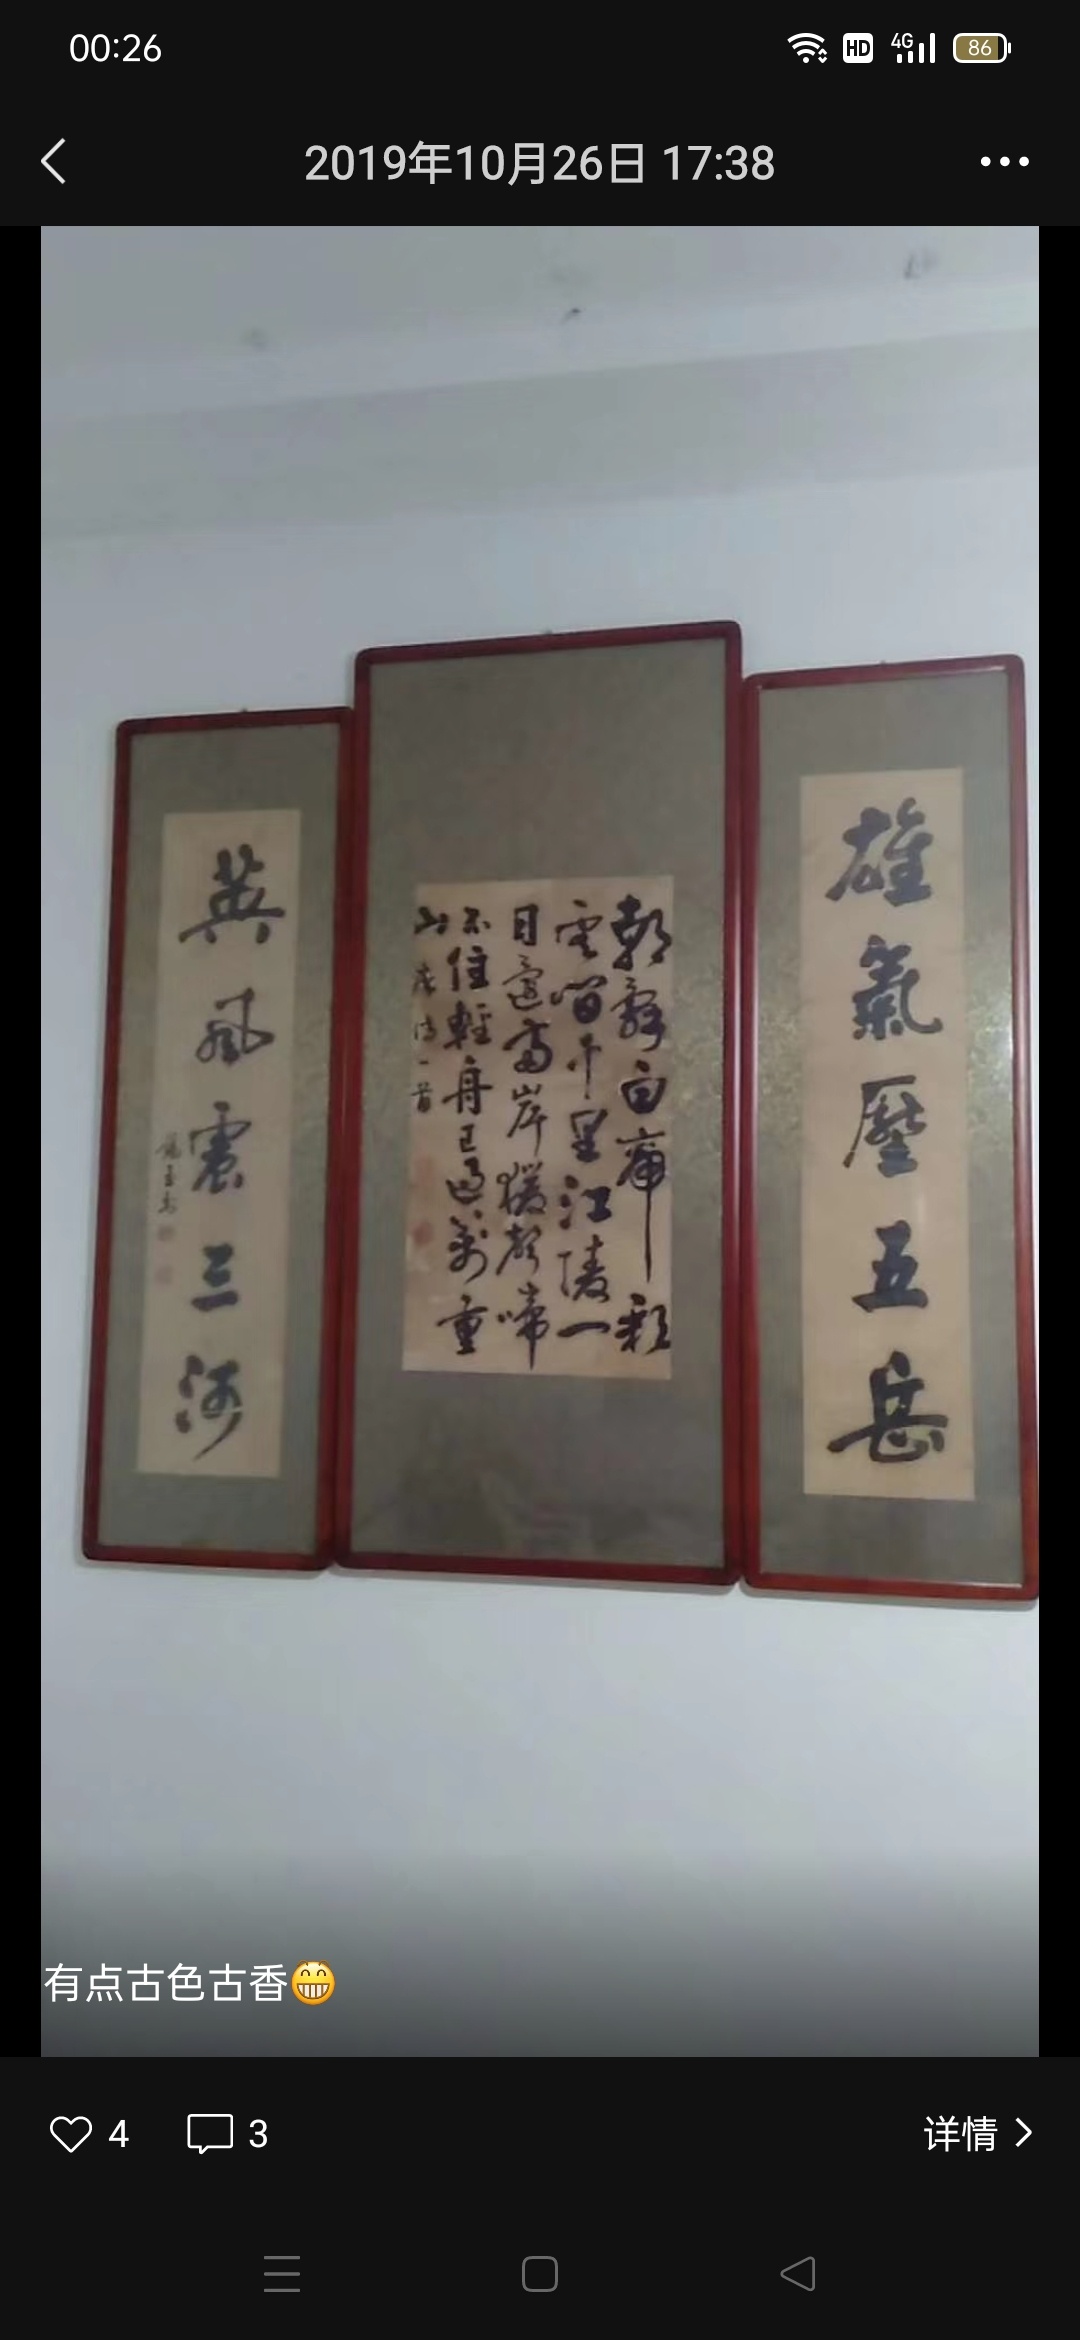 00:26 HD 4G 86
2019年10月26日 17:38
雄氣壓五岳
朝辭白帝彩
雲間千里江陵一
日還兩岸猿聲啼
不住輕舟已過萬重
山 唐詩一首
英風震三河
有点古色古香
4 3 详情